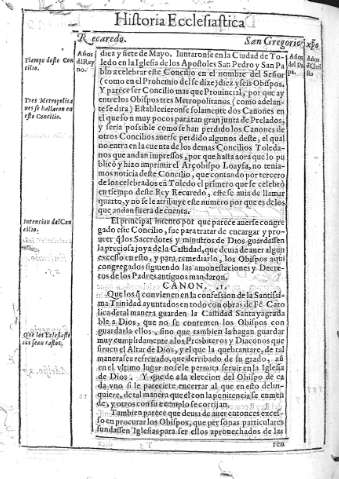 Historia Ecclesiastica
Recaredo.
San Gregorio
xpo.
Años
del Rey
no.
Años
del Pa
pa.
diez y siete de Mayo. Iuntaronse en la Ciudad de To-
ledo en la Iglesia de los Apostoles San Pedro y San Pa-
blo a celebrar este Concilio en el nombre del Señor
(como en el Prohemio dèl se dize) diez y seis Obispos.
Y parece ser Concilio mas que Prouincial, por que ay
entre los Obispos tres Metropolitanos (como adelan-
te se dira) Establecieronse solamente dos Canones en
el que fue poco para tan gran junta de Prelados,
y seria possible como se han perdido los Canones de
otros Concilios auerse perdido algunos deste, el qual
no entra en la cuenta de los demas Concilios Toleda-
nos que andan impressos, por que hasta aora que lo pu
blicò y hizo imprimir el Arçobispo Loaysa, no tenia-
mos noticia deste Concilio, que contando por tercero
de los celebrados en Toledo el primero que se celebrò
en tiempo deste Rey Recaredo, este se auia de llamar
quarto, y no se le atribuye este numero por que es de los
que andan fuera de cuenta.
El principal intento por que parece auerse congre-
gado este Concilio, fue para tratar de encargar y pro-
uer que los Sacerdotes y ministros de Dios guardassen
la preciosa joya de la Castidad, que deuia de auer algun
excesso en esto, y para remediarlo, los Obispos aqui
congregados siguiendo las amonestaciones y Decre-
tos de los Padres antiguos mandaron.
CANON. .1.
Que los que conuienen en la confession de la Santissi-
ma Trinidad ayuntados en todo con obras de Fè Cato
lica de tal manera guarden la Castidad Santa y agrada
ble a Dios, que no se contenten los Obispos con
guardarla ellos, sino que tambien la hagan guardar
muy cumplidamente a los Presbiteros y Diaconos que
siruen el Altar de Dios, y el que la quebrantare, de tal
manera sea refrenado, que derribado de su grado, aũ
en el vltimo lugar no se le permita seruir en la Iglesia
de Dios. Y quede a la eleccion del Obispo de ca
da vno si le pareciere encerrar al que en esto delin-
quiere, de tal manera que el con la penitencia se enmie
de, y otros con su exemplo se corrijan.
Tambien parece que deuia de auer entonces excef-
so en procurar los Obispos, que personas particulares
fundassen Iglesias para ser ellos aprouechados de las
ren
Tiempo deste Con
cilio.
Tres Metropolita
nos se hallaron en
este Concilio.
Intencion del Con
cilio.
Que los Eclesiasti
cos sean castos.